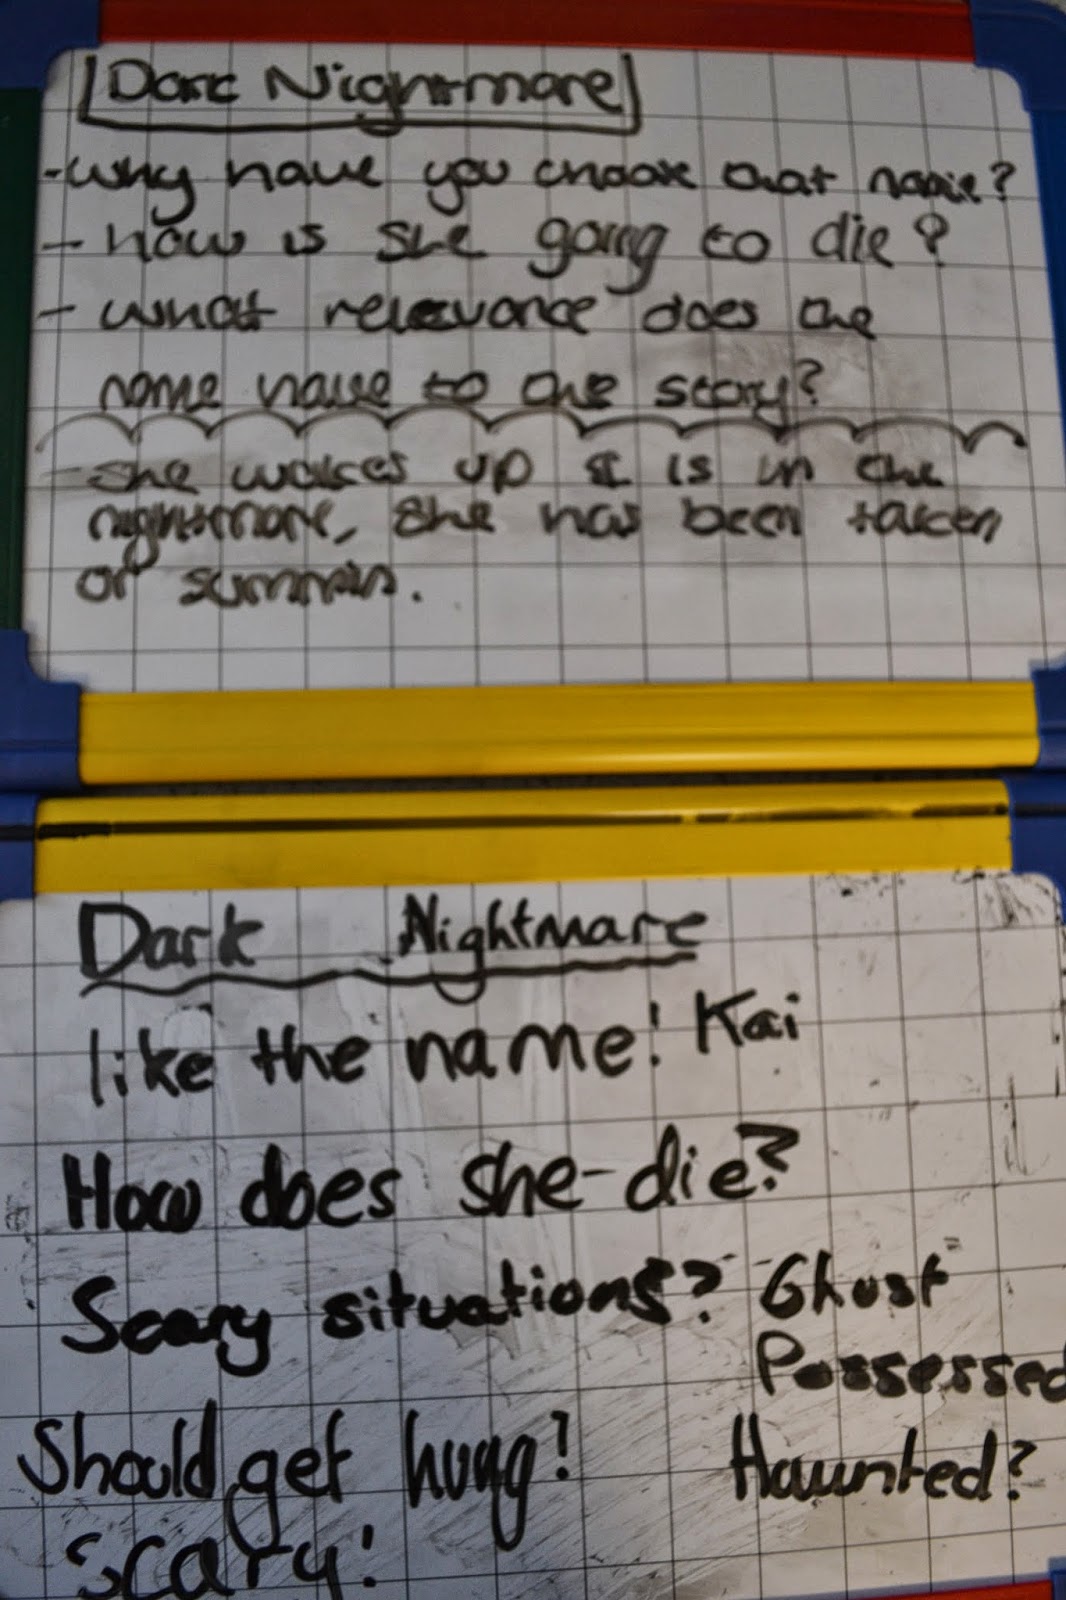 Dark Nightmare
- Why have you choose that name?
- how is she going to die?
- what relevance does the
name have to the story?
- she wakes up & is in the
nightmare, she has been taken
or summin.
Dark Nightmare
like the name! Kai
How does she-die?
Scary situations? Ghost
Possessed
Should get hung! Haunted?
scary!